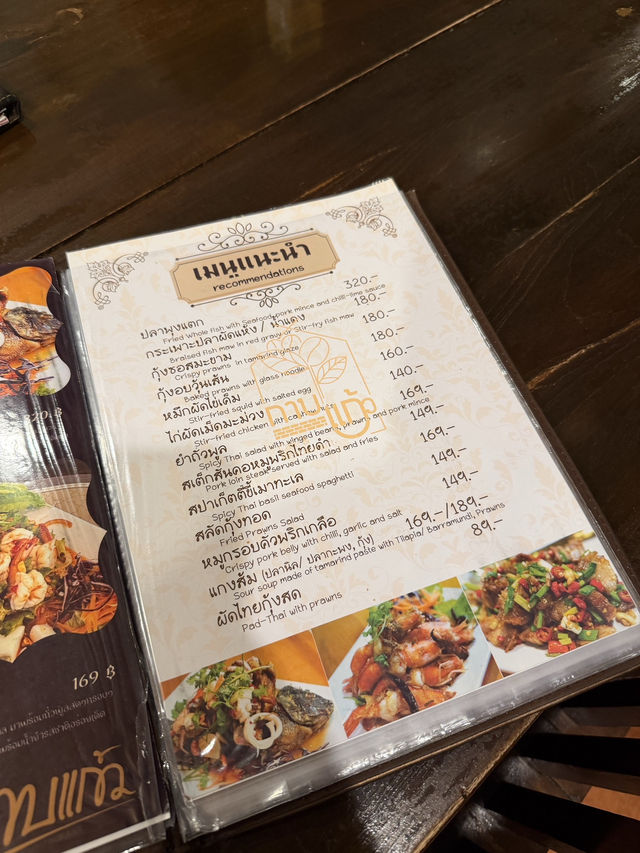 เมนูแนะนำ
recommendations
ปลาพุงแตก 320.-
Fried Whole fish with Seafood, pork mince and chili-lime sauce
กระเพาะปลาผัดแห้ง / น้ำแดง 180.-
Braised fish maw in red gravy or Stir-fry fish maw
กุ้งซอสมะขาม 180.-
Crispy prawns in tamarind glaze
กุ้งอบวุ้นเส้น 180.-
Baked prawns with glass noodle
หมึกผัดไข่เค็ม 160.-
Stir-fried squid with salted egg
ไก่ผัดเม็ดมะม่วง 140.-
Stir-fried chicken with cashew nuts
ยำถั่วพู 169.-
Spicy Thai salad with winged beans, prawns and pork mince
สเต็กสันคอหมูพริกไทยดำ 149.-
Pork loin steak served with salad and fries
สปาเก็ตตี้ขี้เมาทะเล 169.-
Spicy Thai basil seafood spaghetti
สลัดกุ้งทอด 149.-
Fried Prawns Salad
หมูกรอบคั่วพริกเกลือ 149.-
Crispy pork belly with chilli, garlic and salt
แกงส้ม (ปลานิล/ ปลากะพง, กุ้ง) 169.-/189.-
Sour soup made of tamarind paste with Tilapia/ Barramundi, Prawns
ผัดไทยกุ้งสด 89.-
Pad-Thai with prawns
320 ฿
169 ฿